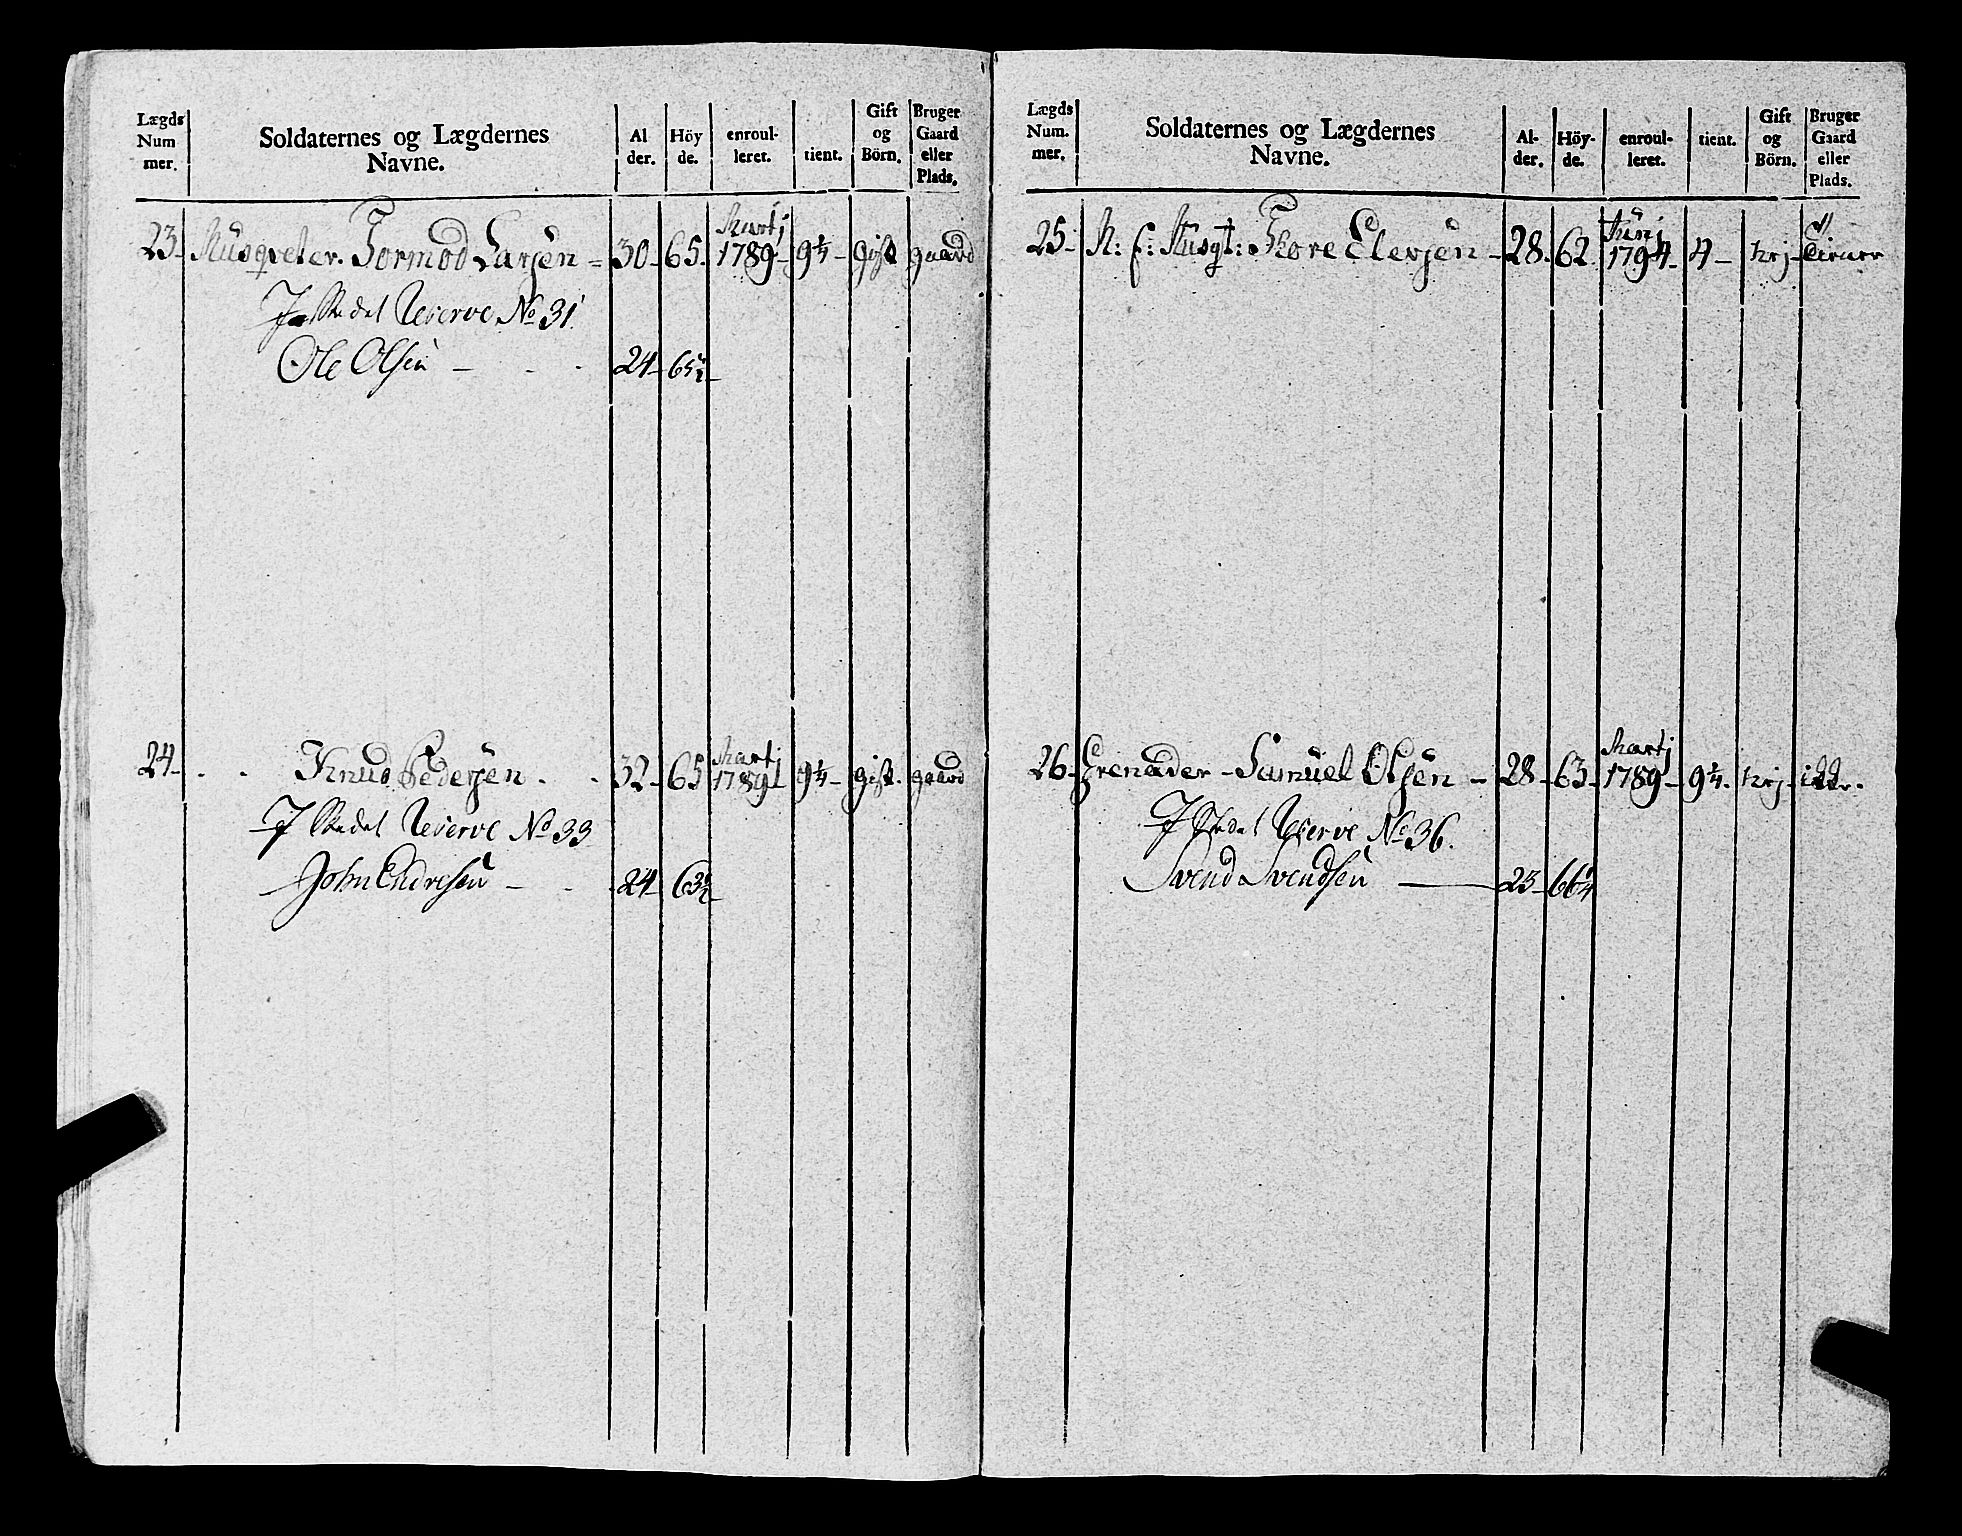 Lægds Num mer. Soldaternes og Lægdernes Navne. Al der. Höy de. enroul- leret. tient. Gift og Börn. Bruger Gaard eller Plads.
23 Musqveter Tormod Larsen 30 65 Martj 1789 9 1/4 gift gaard
Reserve No 31
Ole Olsen 24 65 1/2
24 Knud Pedersen 32 65 Martj 1789 9 1/4 gift gaard
Reserve No 33
John Endresen 24 63 1/2
Lægds Num. mer. Soldaternes og Lægdernes Navne. Al- der. Höy- de. enroul- leret. tient. Gift og Börn. Bruger Gaard eller Plads.
25 Tore 28 62 Junj 1794 4 tiener
26 Grenader Samuel Olsen 28 63 Martj 1789 9 1/4
Reserve No 36.
Svend Svendsen 23 66 1/4